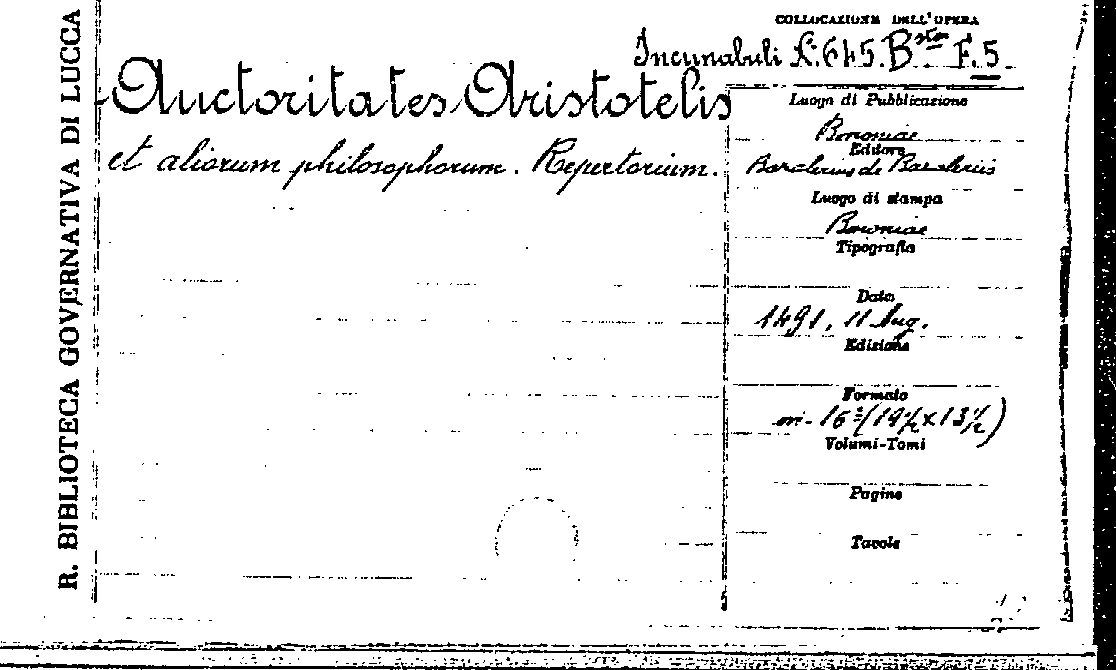 R. BIBLIOTECA GOVERNATIVA DI LUCCA
COLLOCAZIONE DELL'OPERA
Incunabuli N. 645. Bsta F. 5
Auctoritates Aristotelis
et aliorum philosophorum. Repertorium.
Luogo di Pubblicazione
Bononiae
Editore
Bazalerius de Bazaleriis
Luogo di stampa
Bononiae
Tipografia
Data
1491, 11 Aug.
Edizione
Formato
in-16º (19½ x 13½)
Volumi-Tomi
Pagine
Tavole